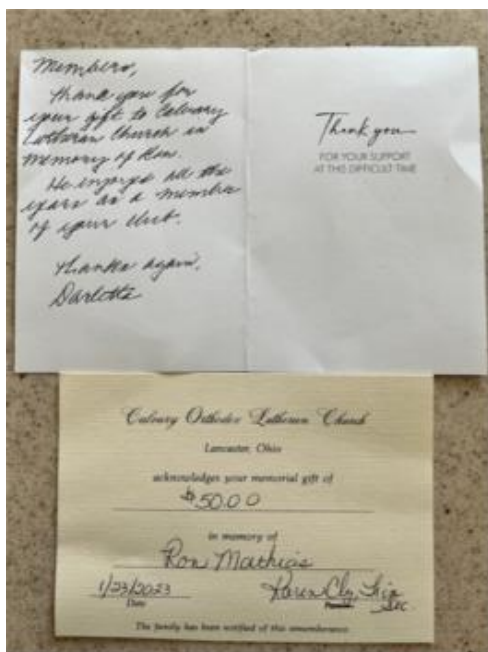 Members,
Thank you for
your gift to Calvary
Lutheran Church in
Memory of Ron.
He enjoyed all the
years as a member
of your club.
Thanks again,
Darletta
Thank you
FOR YOUR SUPPORT
AT THIS DIFFICULT TIME
Calvary Orthodox Lutheran Church
Lancaster, Ohio
acknowledges your memorial gift of
$50.00
in memory of
Ron Mathias
1/23/2023 Karen
Date
Sec
The family has been notified of this remembrance